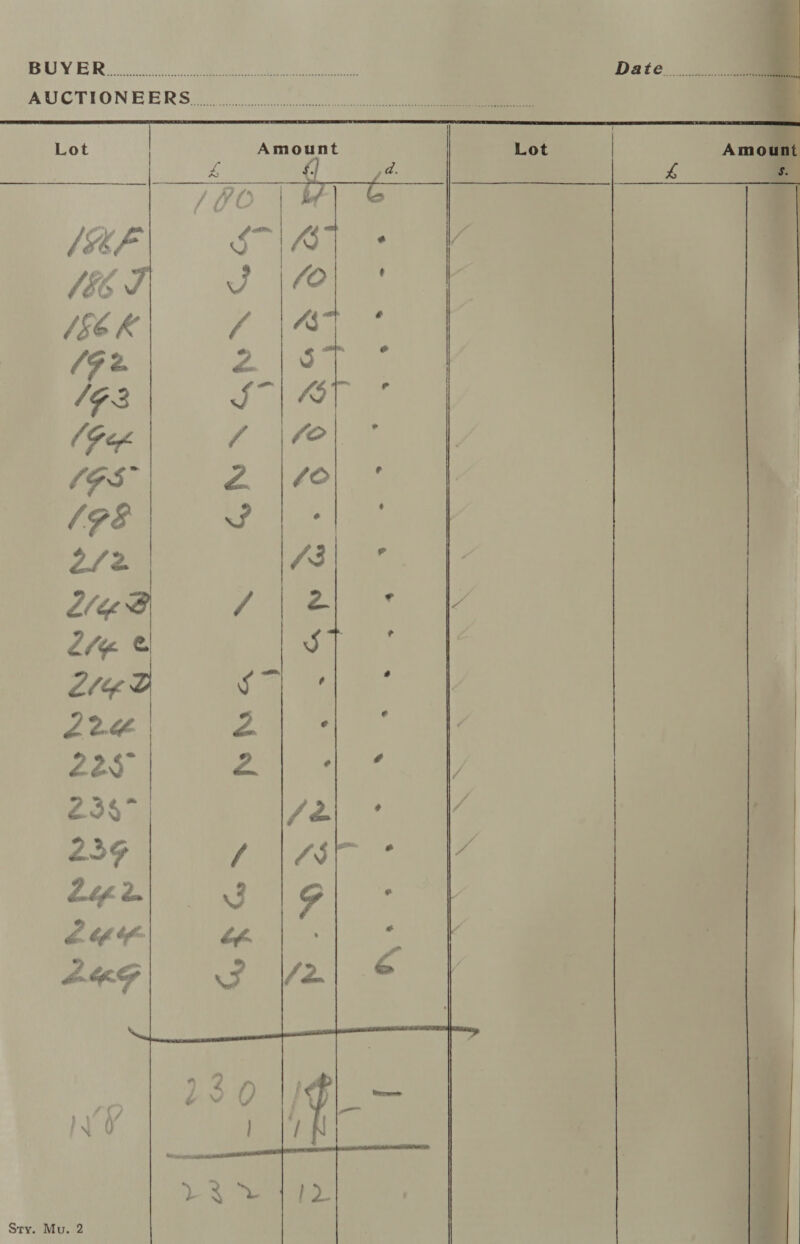 BUYER Date
AUCTIONEERS
Lot Amount Lot Amount
£ s. d. £ s.
180 6
186F 5 15 •
186J 3 10 •
186K 1 15 •
192 2 5 •
193 5 15 •
194 1 10 •
195 2 10 •
198 3 • •
212 13 •
214B 1 2 •
214C 5 •
214D 5 • •
224 2 • •
225 2 • •
235 12 •
239 1 15 •
242 3 9 •
244 4 • •
249 3 12 6
230 —
1
232 12
STY. MU. 2